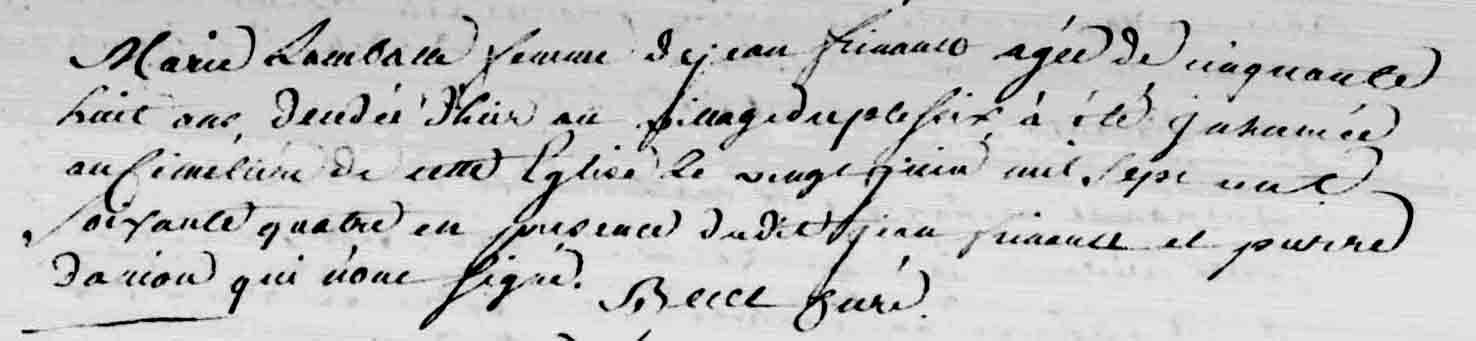 Marie Lamballe femme de jean frinault agée de cinquante
huit ans, decdée d'hier au village duplessix à été jnhumée
au Cimetiere de cette Eglise le vingt juin mil sept cent
soixante quatre en presence dudit jean frinault et pierre
danion qui n'ont signé. curé.